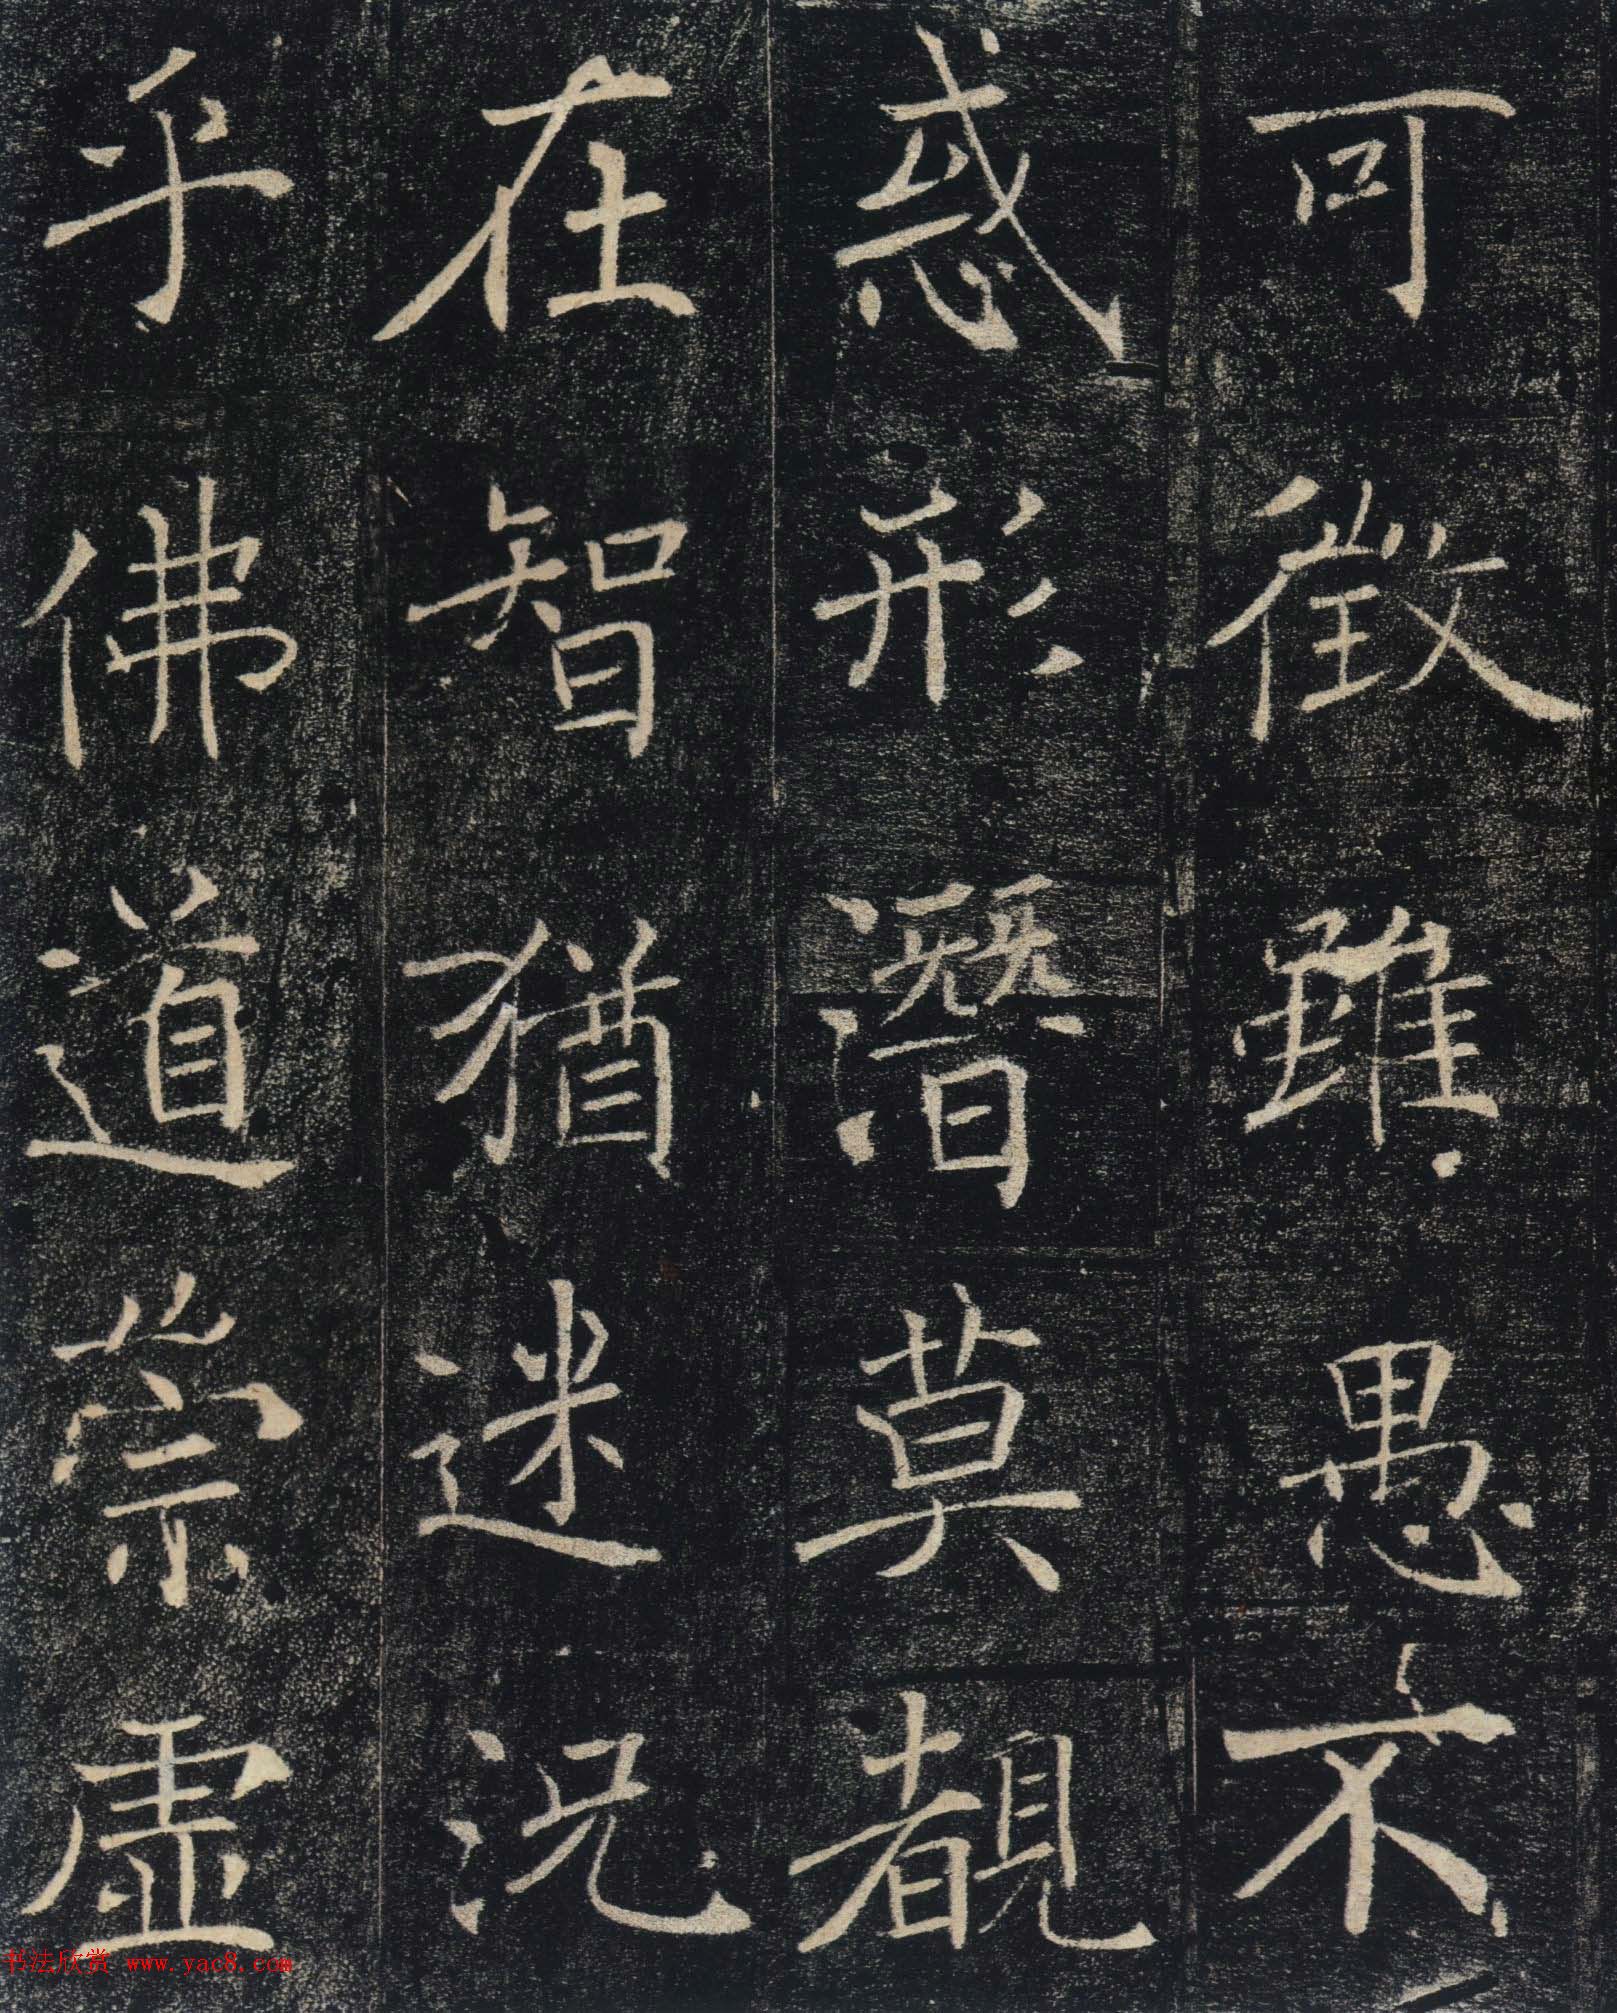 可徵雖愚不
惑形潛莫覩
在智猶迷況
乎佛道崇虛
书法欣赏 www.yac8.com